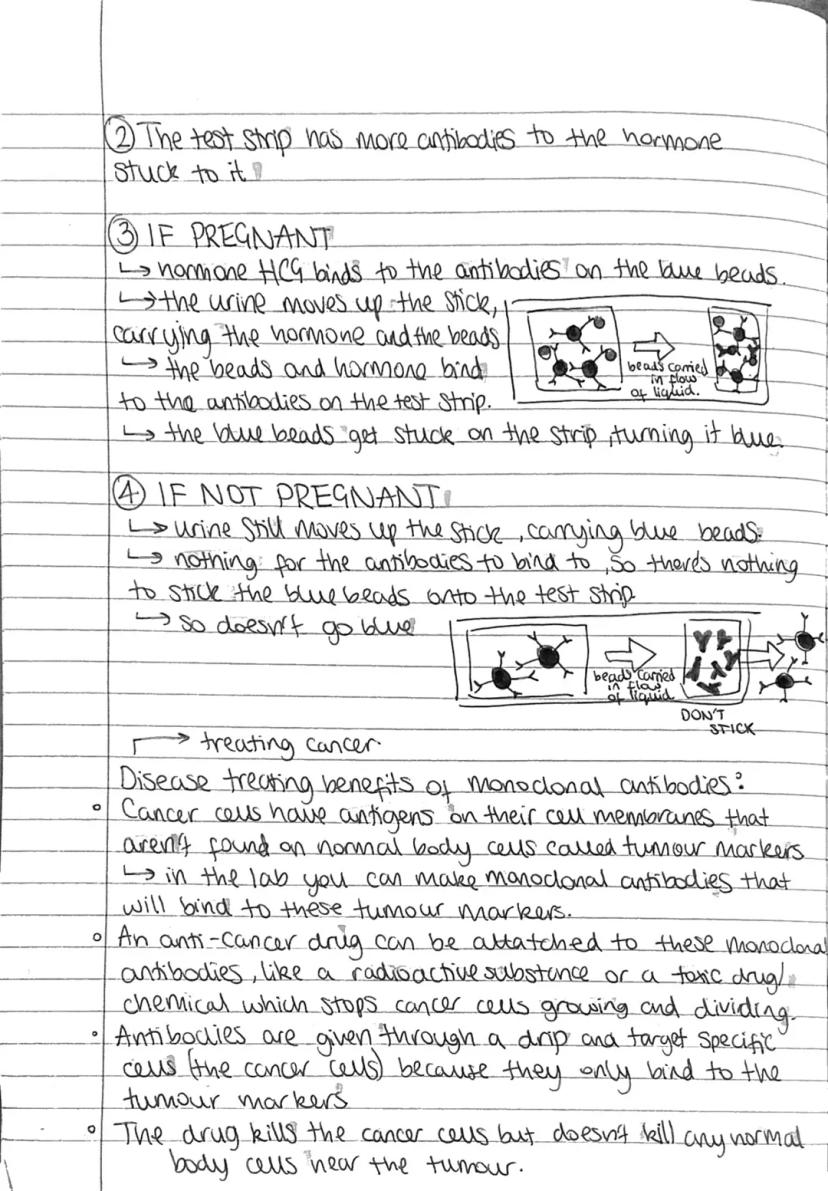 ② The test strip has more antibodies to the hormone
stuck to it
③ IF PREGNANT
↳ hormone HCG binds to the antibodies on the blue beads.
↳ the urine moves up the stick,
carrying the hormone and the beads
↳ the beads and hormone bind
to the antibodies on the test strip.
beads carried
in flow
of liquid.
↳ the blue beads get stuck on the strip, turning it blue.
④ IF NOT PREGNANT
↳ urine still moves up the stick, carrying blue beads.
↳ nothing for the antibodies to bind to, so there's nothing
to stick the blue beads onto the test strip
↳ so doesn't go blue
beads carried
in flow
of liquid
DON'T
STICK
→ treating cancer.
Disease treating benefits of monoclonal antibodies:
° Cancer cells have antigens on their cell membranes that
aren't found on normal body cells called tumour markers
↳ in the lab you can make monoclonal antibodies that
will bind to these tumour markers.
° An anti-cancer drug can be attatched to these monoclonal
antibodies, like a radioactive substance or a toxic drug/
chemical which stops cancer cells growing and dividing.
° Antibodies are given through a drip and target specific
cells (the cancer cells) because they only bind to the
tumour markers
° The drug kills the cancer cells but doesn't kill any normal
body cells near the tumour.